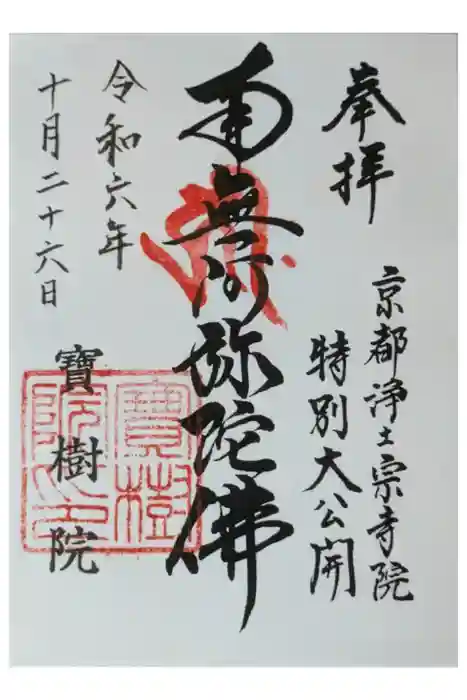 奉拝
京都浄土宗寺院
特別大公開
南無阿弥陀佛
令和六年
十月二十六日
寶樹院
寶樹
院印